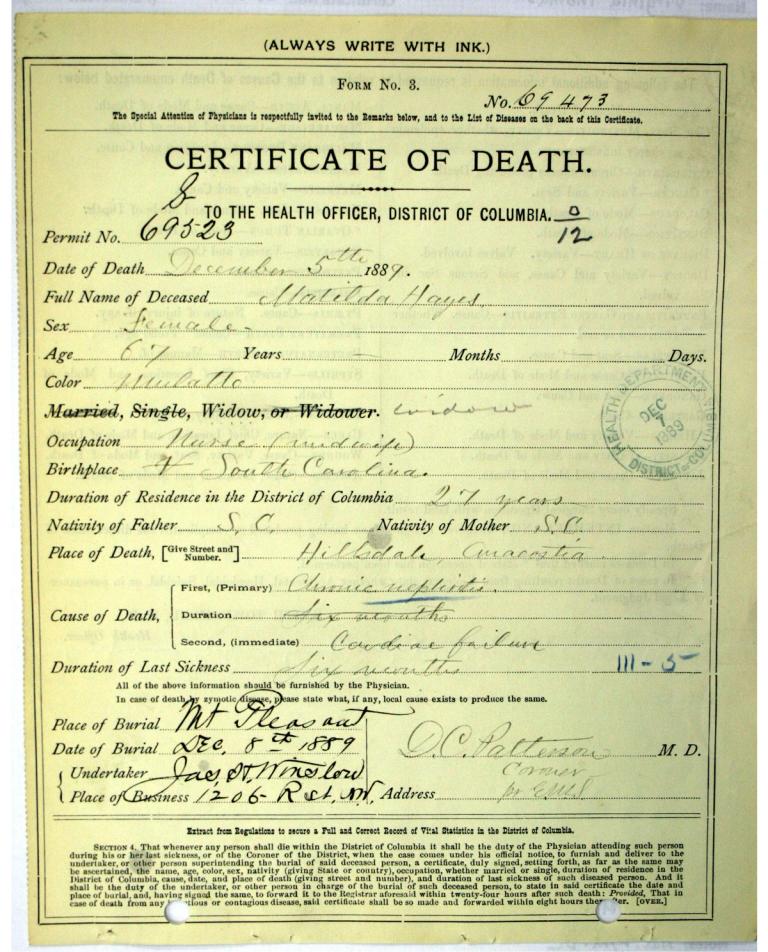 (ALWAYS WRITE WITH INK.)
FORM No. 3.
No. 69473
The Special Attention of Physicians is respectfully invited to the Remarks below, and to the List of Diseases on the back of this Certificate.
CERTIFICATE OF DEATH.
TO THE HEALTH OFFICER, DISTRICT OF COLUMBIA. 0/12
Permit No. 69523
Date of Death December 5th 1889.
Full Name of Deceased Matilda Hayes
Sex Female
Age 67 Years — Months — Days.
Color Mulatto
Married, Single, Widow, or Widower. widow
Occupation Nurse (midwife)
HEALTH DEPARTMENT DEC 7 1889 DISTRICT OF COLUMBIA
Birthplace South Carolina.
Duration of Residence in the District of Columbia 27 years
Nativity of Father S.C. Nativity of Mother S.C.
Place of Death, [Give Street and Number.] Hillsdale, Anacostia
Cause of Death, First, (Primary) Chronic nephritis.
Duration Six months
Second, (immediate) Cardiac failure
Duration of Last Sickness Six months III-5
All of the above information should be furnished by the Physician.
In case of death by zymotic disease, please state what, if any, local cause exists to produce the same.
Place of Burial Mt Pleasant
Date of Burial DEC, 8th 1889 D.C. Patterson M. D.
Undertaker Jas. H. Winslow Coroner
Place of Business 1206- R st, NW, Address
Extract from Regulations to secure a Full and Correct Record of Vital Statistics in the District of Columbia.
SECTION 4. That whenever any person shall die within the District of Columbia it shall be the duty of the Physician attending such person
during his or her last sickness, or of the Coroner of the District, when the case comes under his official notice, to furnish and deliver to the
undertaker, or other person superintending the burial of said deceased person, a certificate, duly signed, setting forth, as far as the same may
be ascertained, the name, age, color, sex, nativity (giving State or country), occupation, whether married or single, duration of residence in the
District of Columbia, cause, date, and place of death (giving street and number), and duration of last sickness of such deceased person. And it
shall be the duty of the undertaker, or other person in charge of the burial of such deceased person, to state in said certificate the date and
place of burial, and, having signed the same, to forward it to the Registrar aforesaid within twenty-four hours after such death: Provided, That in
case of death from any or contagious disease, said certificate shall be so made and forwarded within eight hours [OVER.]